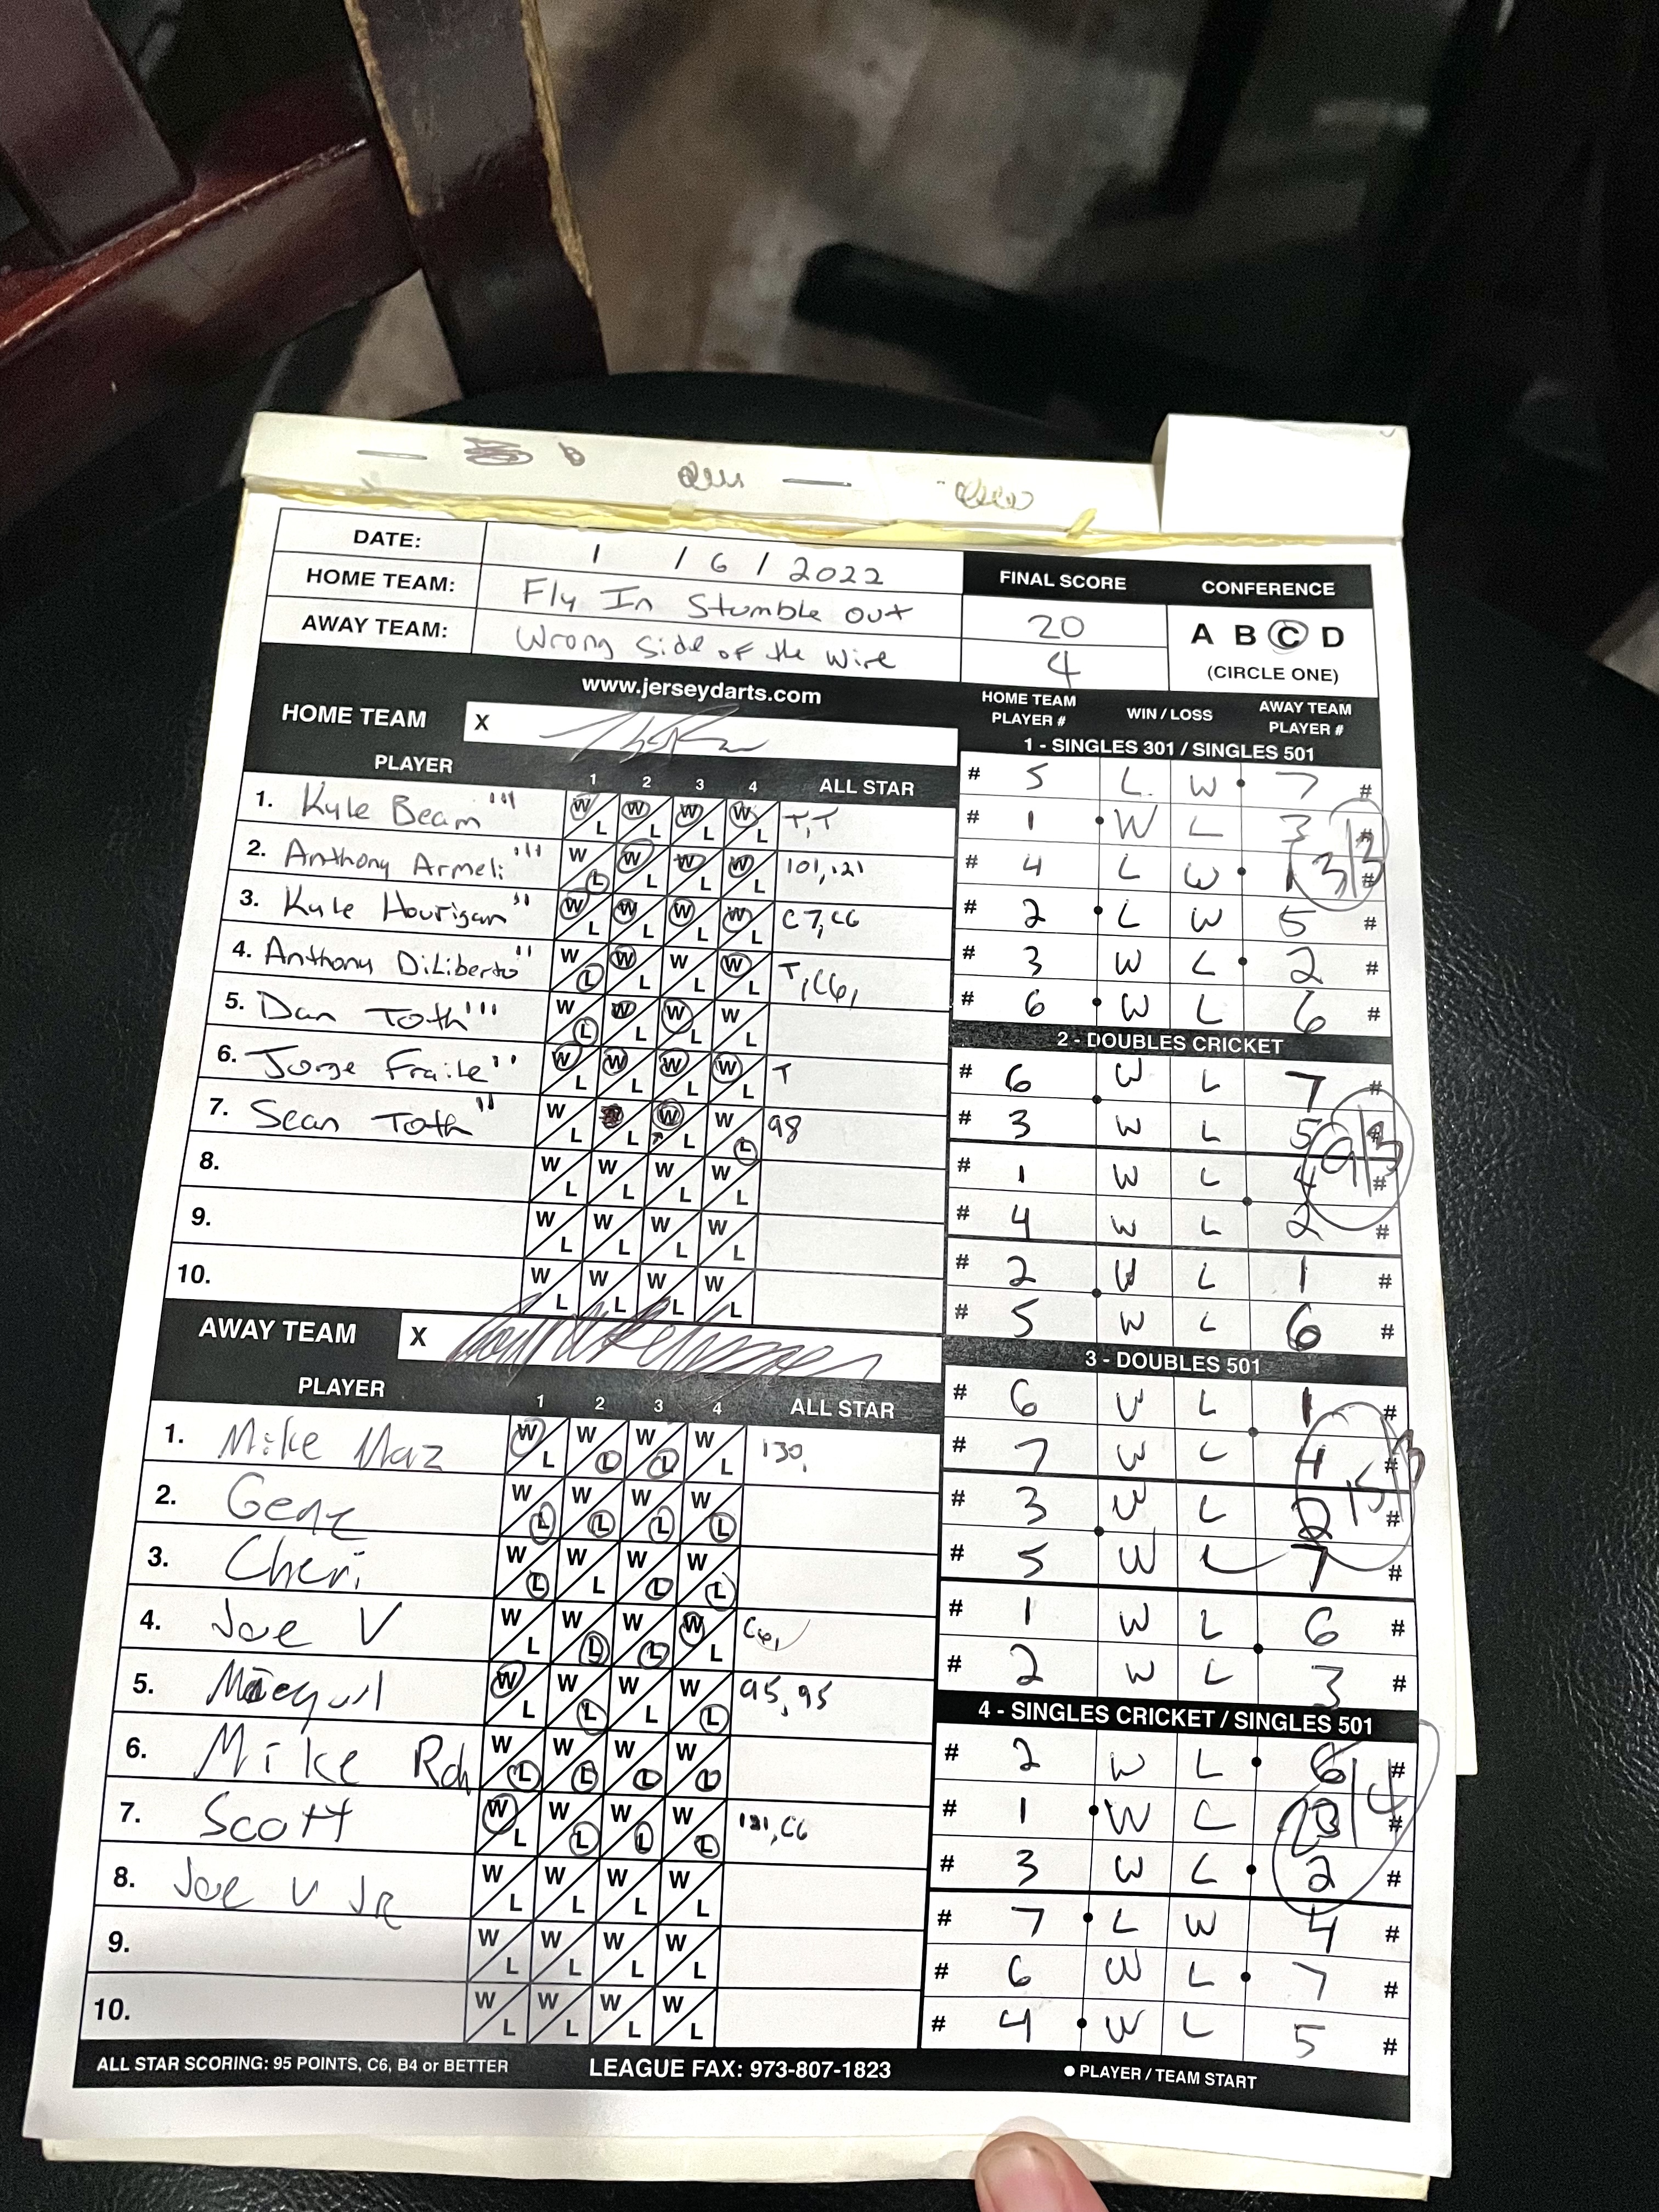 DATE: 1 / 6 / 2022
HOME TEAM: Fly In Stumble Out
AWAY TEAM: Wrong Side of the Wire
FINAL SCORE
20
4
CONFERENCE
A B C D
(CIRCLE ONE)
www.jerseydarts.com
HOME TEAM X
PLAYER 1 2 3 4 ALL STAR
1. Kyle Beam W L W L W L W L T, T
2. Anthony Armeli W L W L W L W L 101, 121
3. Kyle Hourigan W L W L W L W L C7, C6
4. Anthony DiLiberto W L W L W L W L T, C6,
5. Dan Toth W L W L W L W L
6. Jorge Fraile W L W L W L W L T
7. Sean Toth W L L W L W L 98
8. W L W L W L W L
9. W L W L W L W L
10. W L W L W L W L
AWAY TEAM X
PLAYER 1 2 3 4 ALL STAR
1. Mike Maz W L W L W L W L 130,
2. Gene W L W L W L W L
3. Cheri W L W L W L W L
4. Joe V W L W L W L W L C6,
5. W L W L W L W L 95, 95
6. Mike Rch W L W L W L W L
7. Scott W L W L W L W L 121, C6
8. Joe V Jr W L W L W L W L
9. W L W L W L W L
10. W L W L W L W L
HOME TEAM PLAYER # WIN / LOSS AWAY TEAM PLAYER #
1 - SINGLES 301 / SINGLES 501
# 5 L W 7 #
# 1 W L 3 #
# 4 L W 1 #
3/3
# 2 L W 5 #
# 3 W L 2 #
# 6 W L 6 #
2 - DOUBLES CRICKET
# 6 W L 7 #
# 3 W L 5 #
# 1 W L 4 #
9/3
# 4 W L 2 #
# 2 W L 1 #
# 5 W L 6 #
3 - DOUBLES 501
# 6 W L 1 #
# 7 W L 4 #
# 3 W L 2 #
15/3
# 5 W L 7 #
# 1 W L 6 #
# 2 W L 3 #
4 - SINGLES CRICKET / SINGLES 501
# 2 W L 6 #
# 1 W L 3 #
20/4
# 3 W L 2 #
# 7 L W 4 #
# 6 W L 7 #
# 4 W L 5 #
ALL STAR SCORING: 95 POINTS, C6, B4 or BETTER LEAGUE FAX: 973-807-1823 ● PLAYER / TEAM START